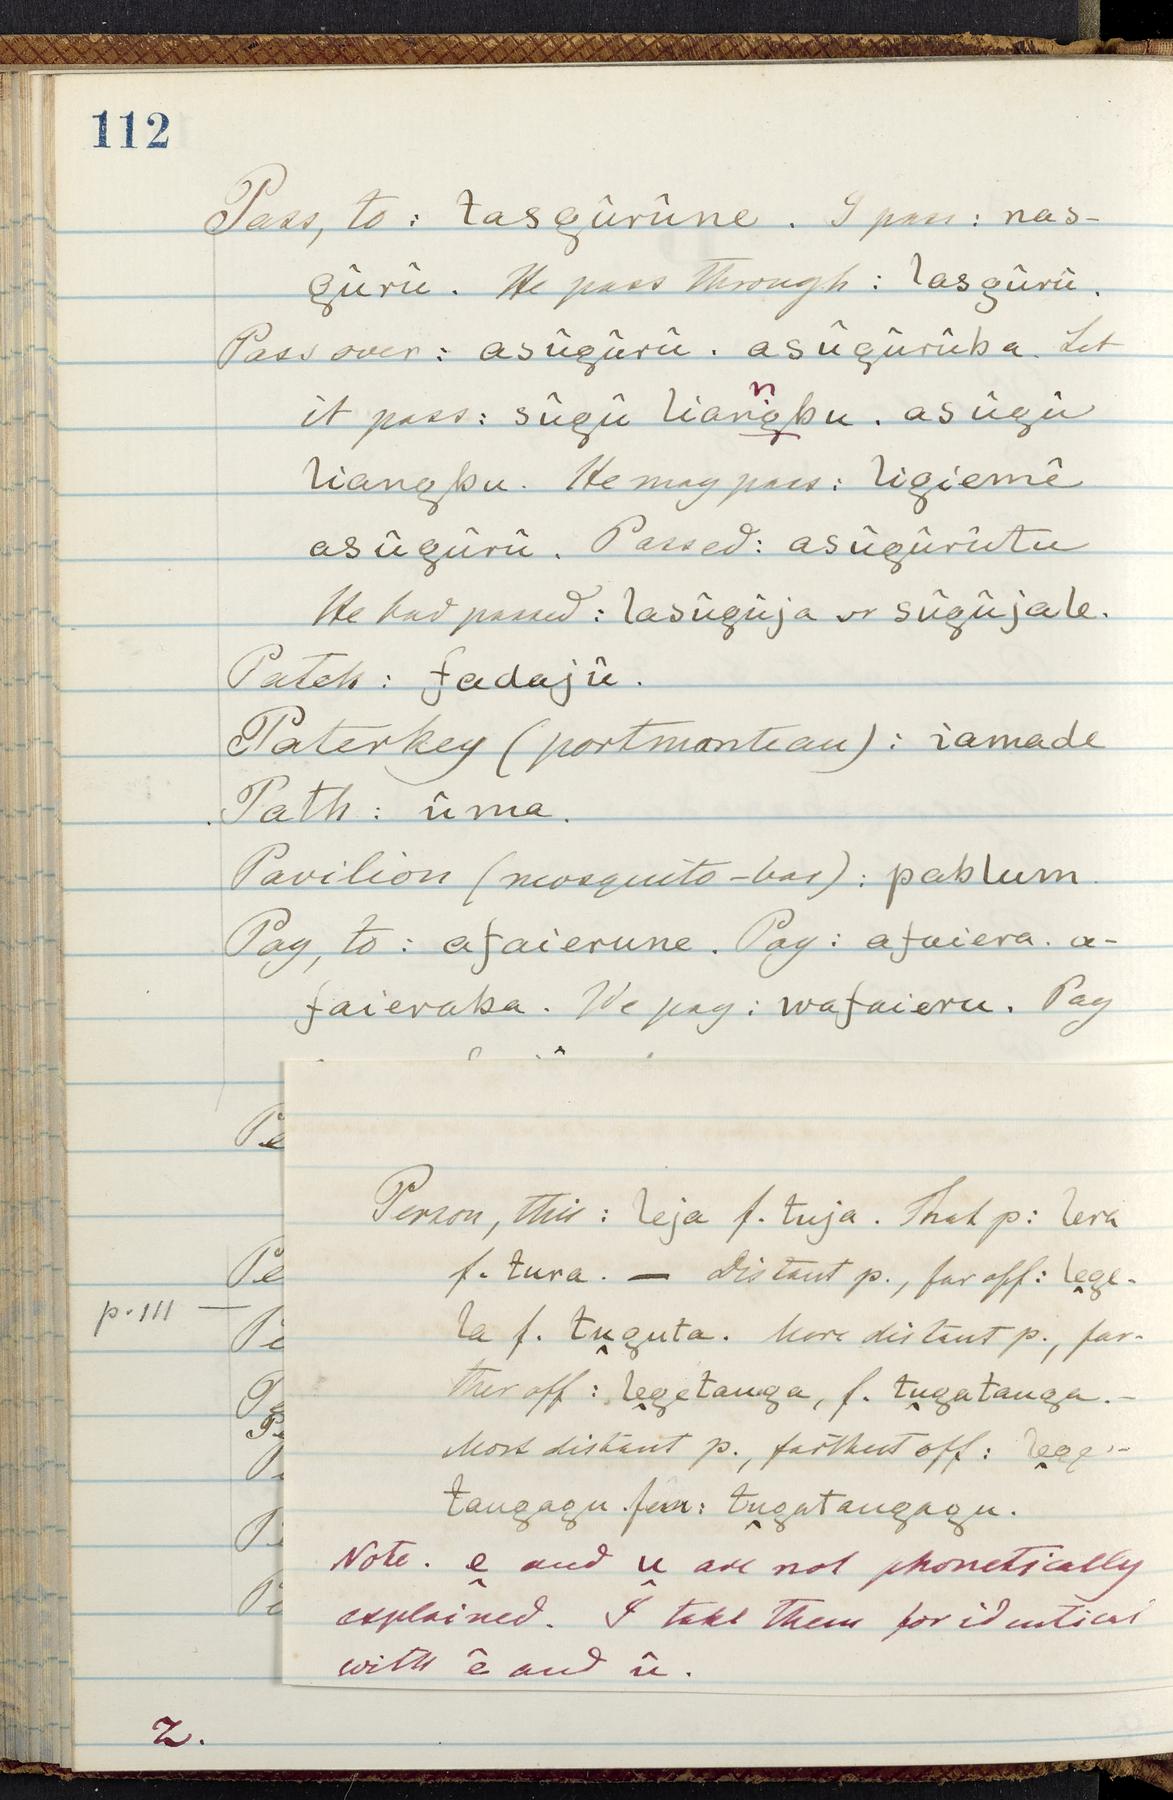 112
Pass, to: tasgûrûne. I pass: nas-
gûrû. He pass through: lasgûrû.
Pass over: asûgûrû. asûgûrûba. Let
it pass: sûgû liangbu. asûgû
n
liangbu. He may pass: ligiemê
asûgûrû. Passed: asûgûrûtu
He had passed: lasûgûja or sûgûjale.
Patch: fadajû.
Paterkey (portmonteau): iamade
Path: ûma.
Pavilion (mosquito-bar): pablum
Pay, to: afaierune. Pay: afaiera. a-
faieraba. We pay: wafaieru. Pay
Pe
Person, this: leja f. tuja. That p: lera
f. tura. — Distant p., far off: lḙge-
la f. tṷguta. More distant p., far-
ther off: lḙgetanga, f. tṷgatanga.-
Most distant p., farthest off: lḙge-
tangagu. fem: tṷgatangagu.
Note. ḙ and ṷ are not phonetically
explained. I take them for identical
with ê and û.
Pe
p. 111 —
2.